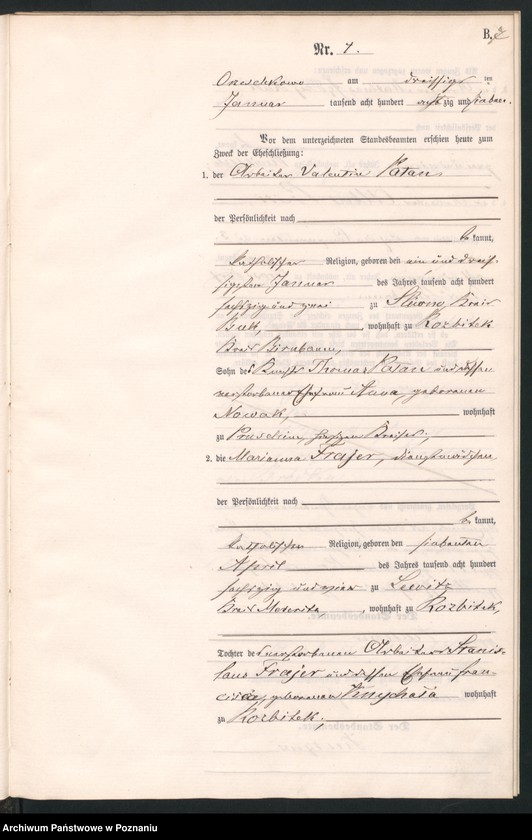 B. 7
Nr. 7.
Orzeschkowo am dreißig ten
Januar tausend acht hundert acht zig und sieben.
Vor dem unterzeichneten Standesbeamten erschien heute zum
Zweck der Eheschließung:
1. der Arbeiter Valentin Ratajs
der Persönlichkeit nach
be kannt,
katholischer Religion, geboren den ein und dreis-
sigsten Januar des Jahres tausend acht hundert
sechszig und zwei zu Kreis
Buk, wohnhaft zu Rozbitek
Kreis Birnbaum,
Sohn des Thomas und dessen
verstorbenen Ehefrau Anna, geborenen
Nowak, wohnhaft
zu hiesigen Kreises,
2. die Marianna Frajer,
der Persönlichkeit nach
be kannt,
katholischer Religion, geboren den siebenten
April des Jahres tausend acht hundert
sechszig und vier zu Lewitz
Kreis Meseritz, wohnhaft zu Rozbitek,
Tochter des verstorbenen Arbeiters Stanis-
laus Frajer und dessen Ehefrau Fran-
cisca, geborenen wohnhaft
zu Rozbitek.
Archiwum Państwowe w Poznaniu